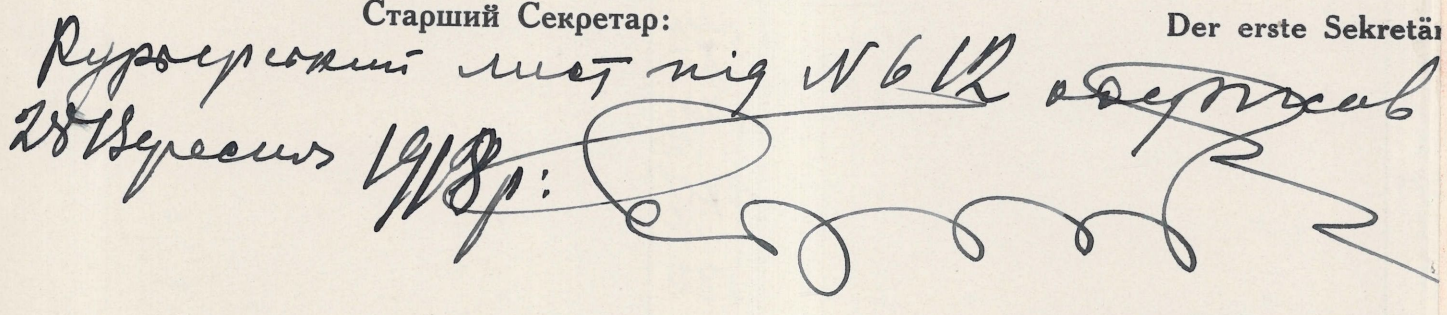 Старший Секретар: Der erste Sekretär
Курьерский лист під N 612 одержав
28 Вересня 1918 р: